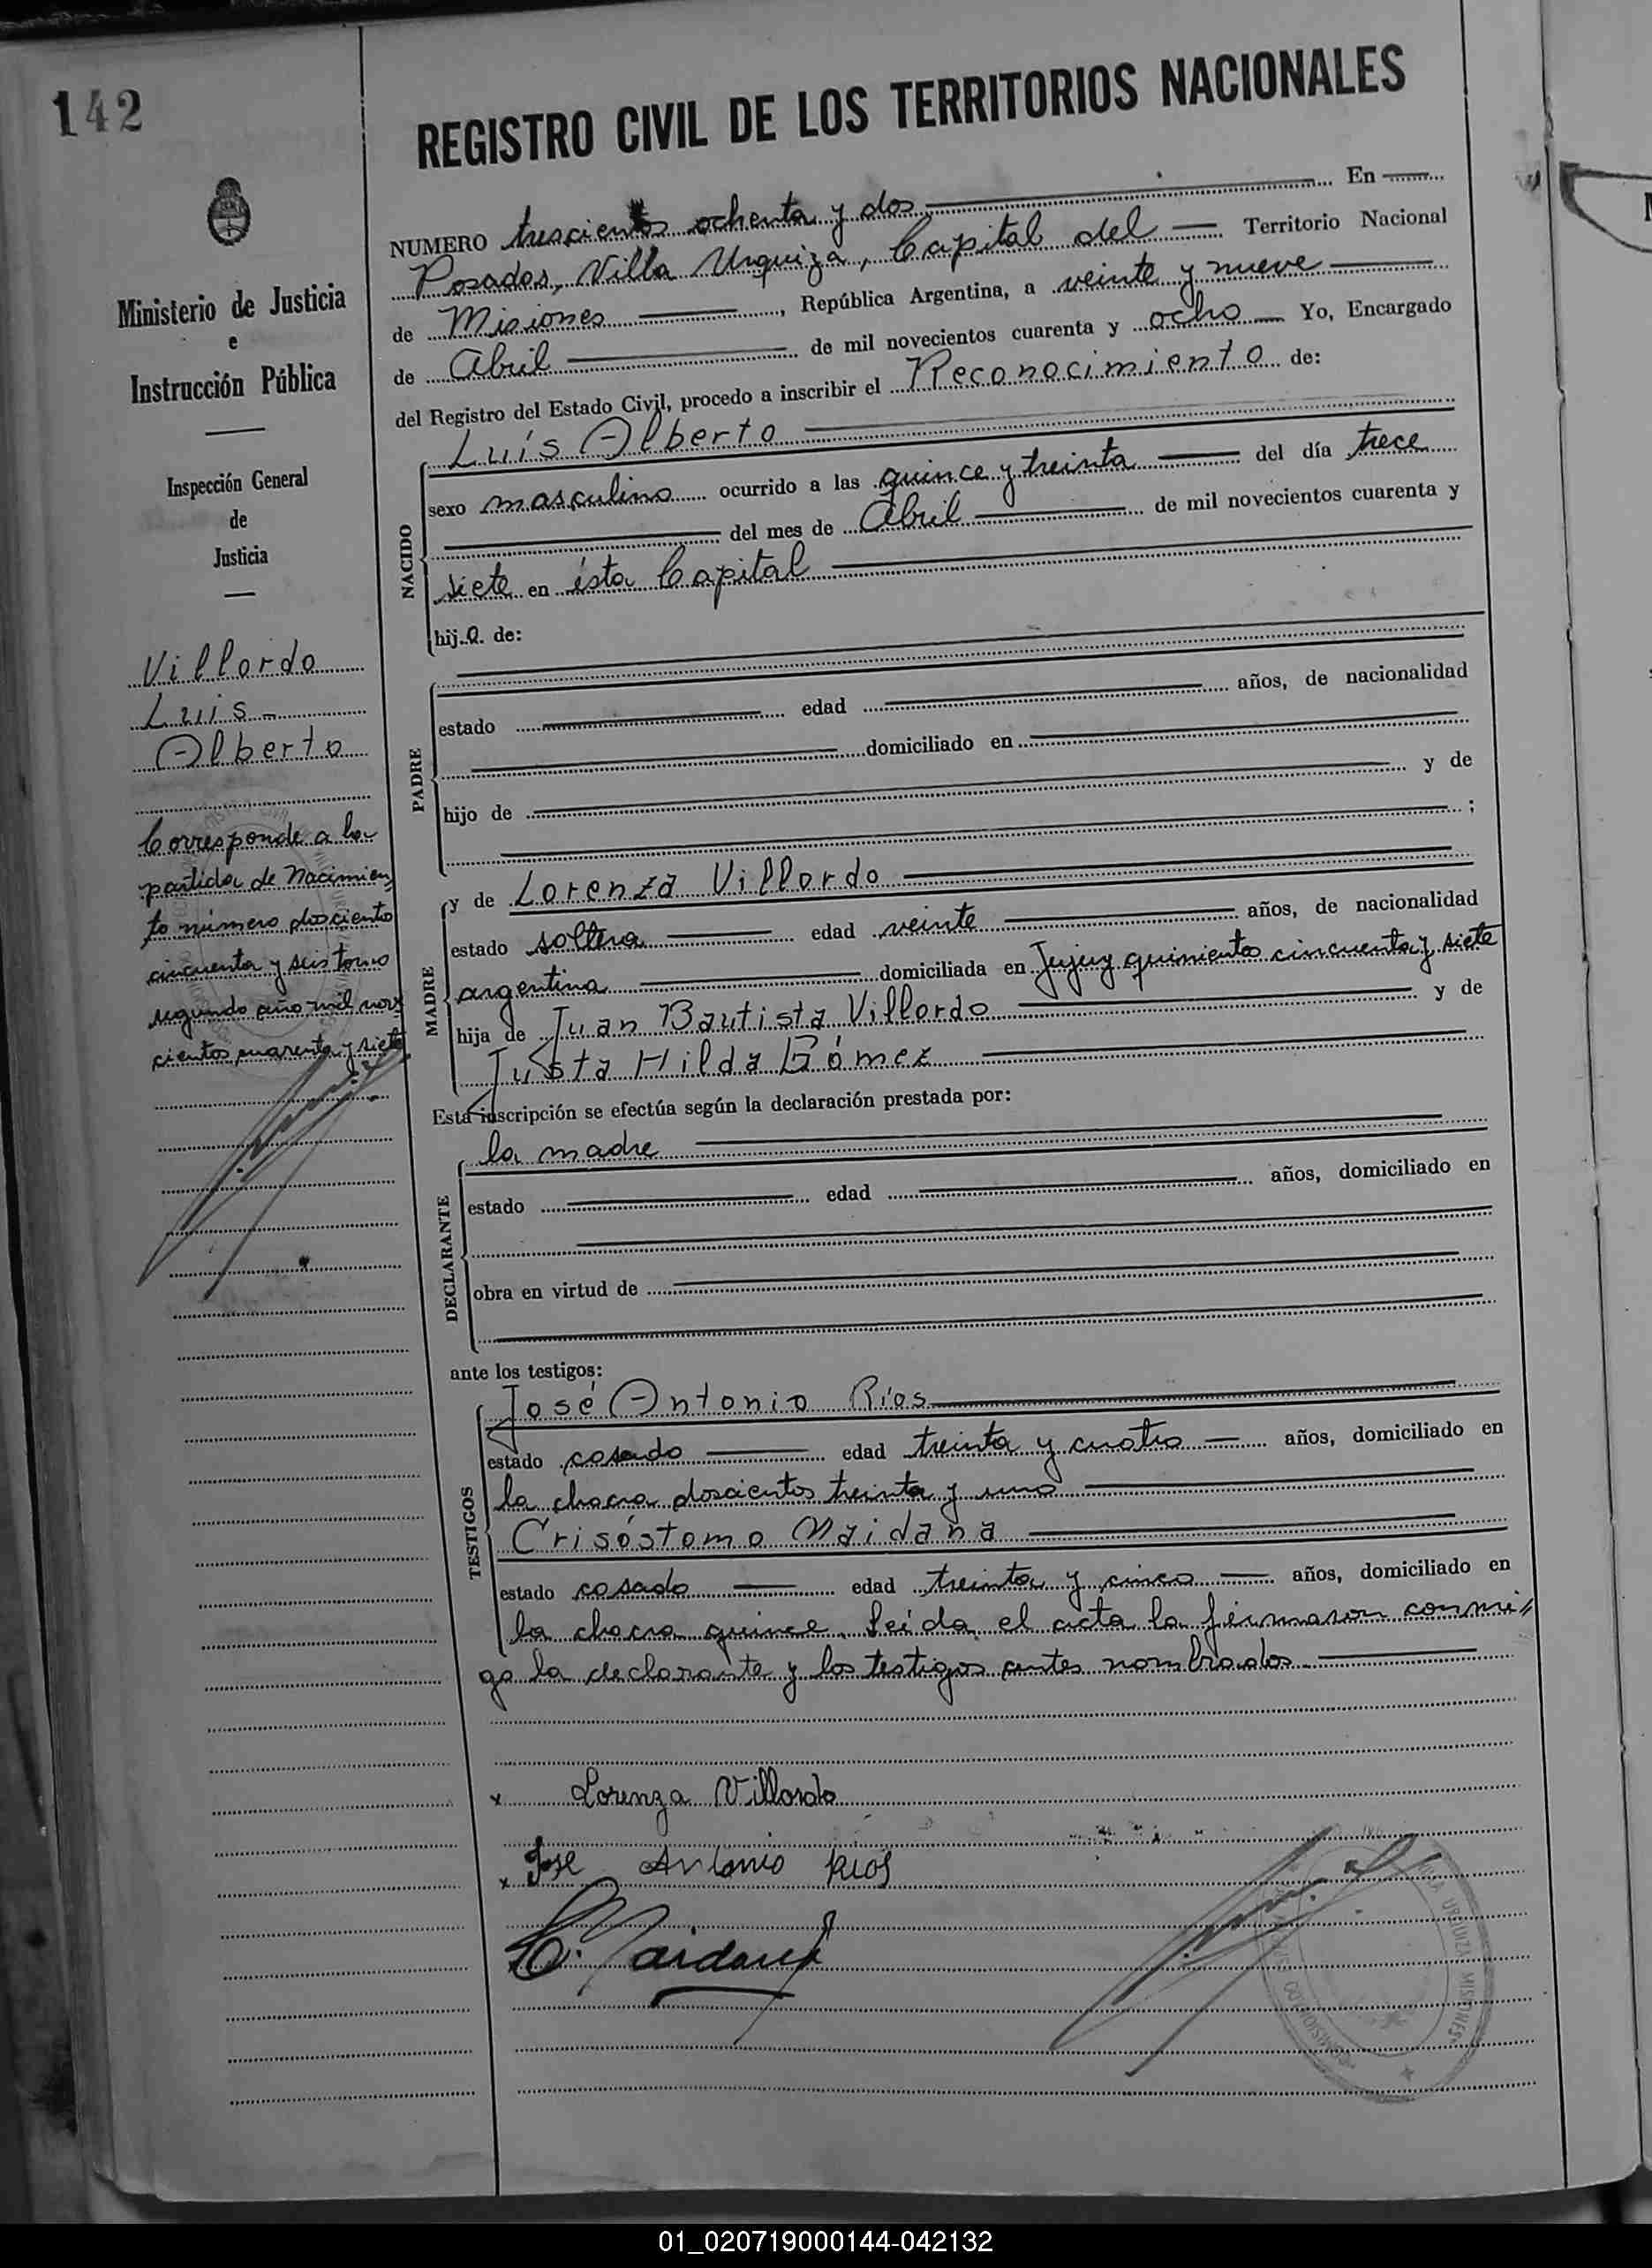 142
REGISTRO CIVIL DE LOS TERRITORIOS NACIONALES
Ministerio de Justicia
e
Instrucción Pública
Inspección General
de
Justicia
Villordo
Luis
Alberto
Corresponde a la
partida de Nacimien
to número dosciento
cincuenta y seis tomo
segundo año mil nove
cientos cuarenta y siete
NUMERO trescientos ochenta y dos En
Posadas, Villa Urquiza, Capital del Territorio Nacional
de Misiones, República Argentina, a veinte y nueve
de Abril de mil novecientos cuarenta y ocho Yo, Encargado
del Registro del Estado Civil, procedo a inscribir el Reconocimiento de:
NACIDO
Luis Alberto
sexo masculino ocurrido a las quince y treinta del día trece
del mes de Abril de mil novecientos cuarenta y
siete en ésta Capital
hijo de:
PADRE
estado edad años, de nacionalidad
domiciliado en
hijo de y de
;
MADRE
y de Lorenza Villordo
estado soltera edad veinte años, de nacionalidad
argentina domiciliada en Jujuy quinientos cincuenta y siete
hija de Juan Bautista Villordo y de
Justa Hilda Gómez
Esta inscripción se efectúa según la declaración prestada por:
DECLARANTE
la madre
estado edad años, domiciliado en
obra en virtud de
ante los testigos:
TESTIGOS
José Antonio Ríos
estado casado edad treinta y cuatro años, domiciliado en
la chacra doscientos treinta y uno
Crisóstomo Maidana
estado casado edad treinta y cinco años, domiciliado en
la chacra quince. Leída el acta la firmaron conmi
go la declarante y los testigos antes nombrados.
x Lorenza Villordo
x Jose Antonio Rios
C. Maidana
VILLA URQUIZA MISIONES
01_020719000144-042132